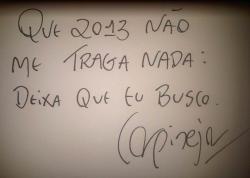 QUE 2013 NÃO
ME TRAGA NADA:
DEIXA QUE EU BUSCO.
Carpinejar